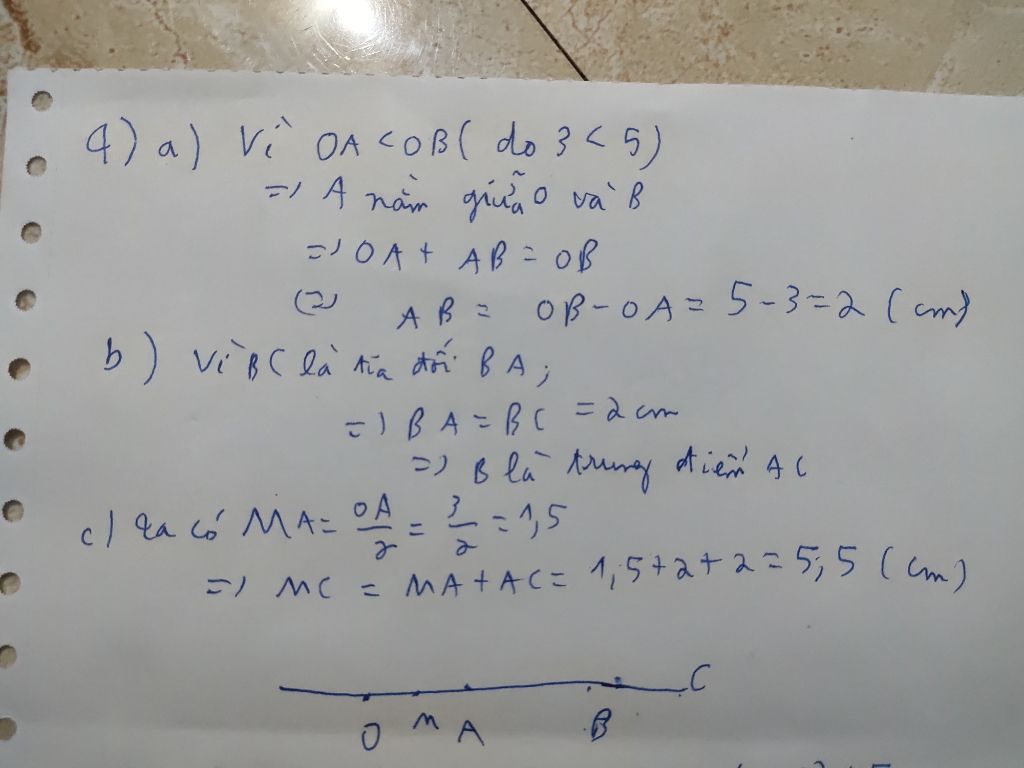 4) a) Vì OA < OB ( do 3 < 5)
=> A nằm giữa O và B
=> OA + AB = OB
(=) AB = OB - OA = 5 - 3 = 2 (cm)
b) Vì BC là tia đối BA;
=> BA = BC = 2 cm
=> B là trung điểm AC
c) Ta có MA = OA/2 = 3/2 = 1,5
=> MC = MA + AC = 1,5 + 2 + 2 = 5,5 (cm)
C
O M A B